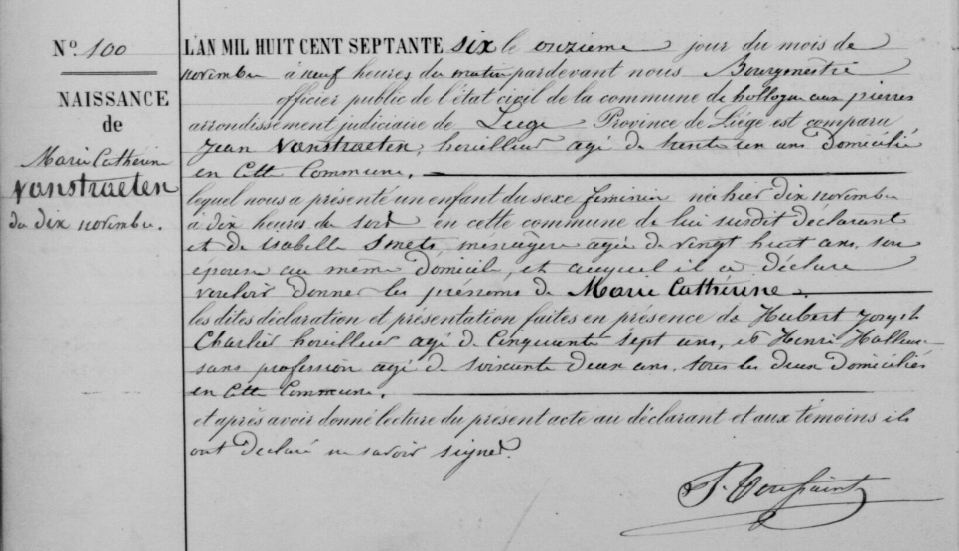 N° 100
NAISSANCE
de
Marie Catherine
Vanstraeten
du dix novembre.
L'AN MIL HUIT CENT SEPTANTE six le onzieme jour du mois de
novembre à neuf heures du matin pardevant nous Bourgmestre
officier public de l'état civil de la commune de hollogne aux pierres
arrondissement judiciaire de Liége Province de Liége est comparu
Jean Vanstraeten, houilleur agé de trente un ans domicilié
en cette Commune.
lequel nous a présenté un enfant du sexe feminin né hier dix novembre
à dix heures du soir en cette commune de lui susdit déclarant
et de Isabelle Smets, menagere agée de vingt huit ans, son
épouse au même domicile, et auquel il a déclaré
vouloir donner les prénoms de Marie Cathérine.
les dites déclaration et présentation faites en présence de Hubert Joseph
Charlier houilleur agé de cinquante sept ans, et Henri
sans profession agé de soixante deux ans, tous les deux domiciliés
en cette Commune.
et après avoir donné lecture du présent acte au déclarant et aux témoins ils
ont declaré ne savoir signer.
Toussaint